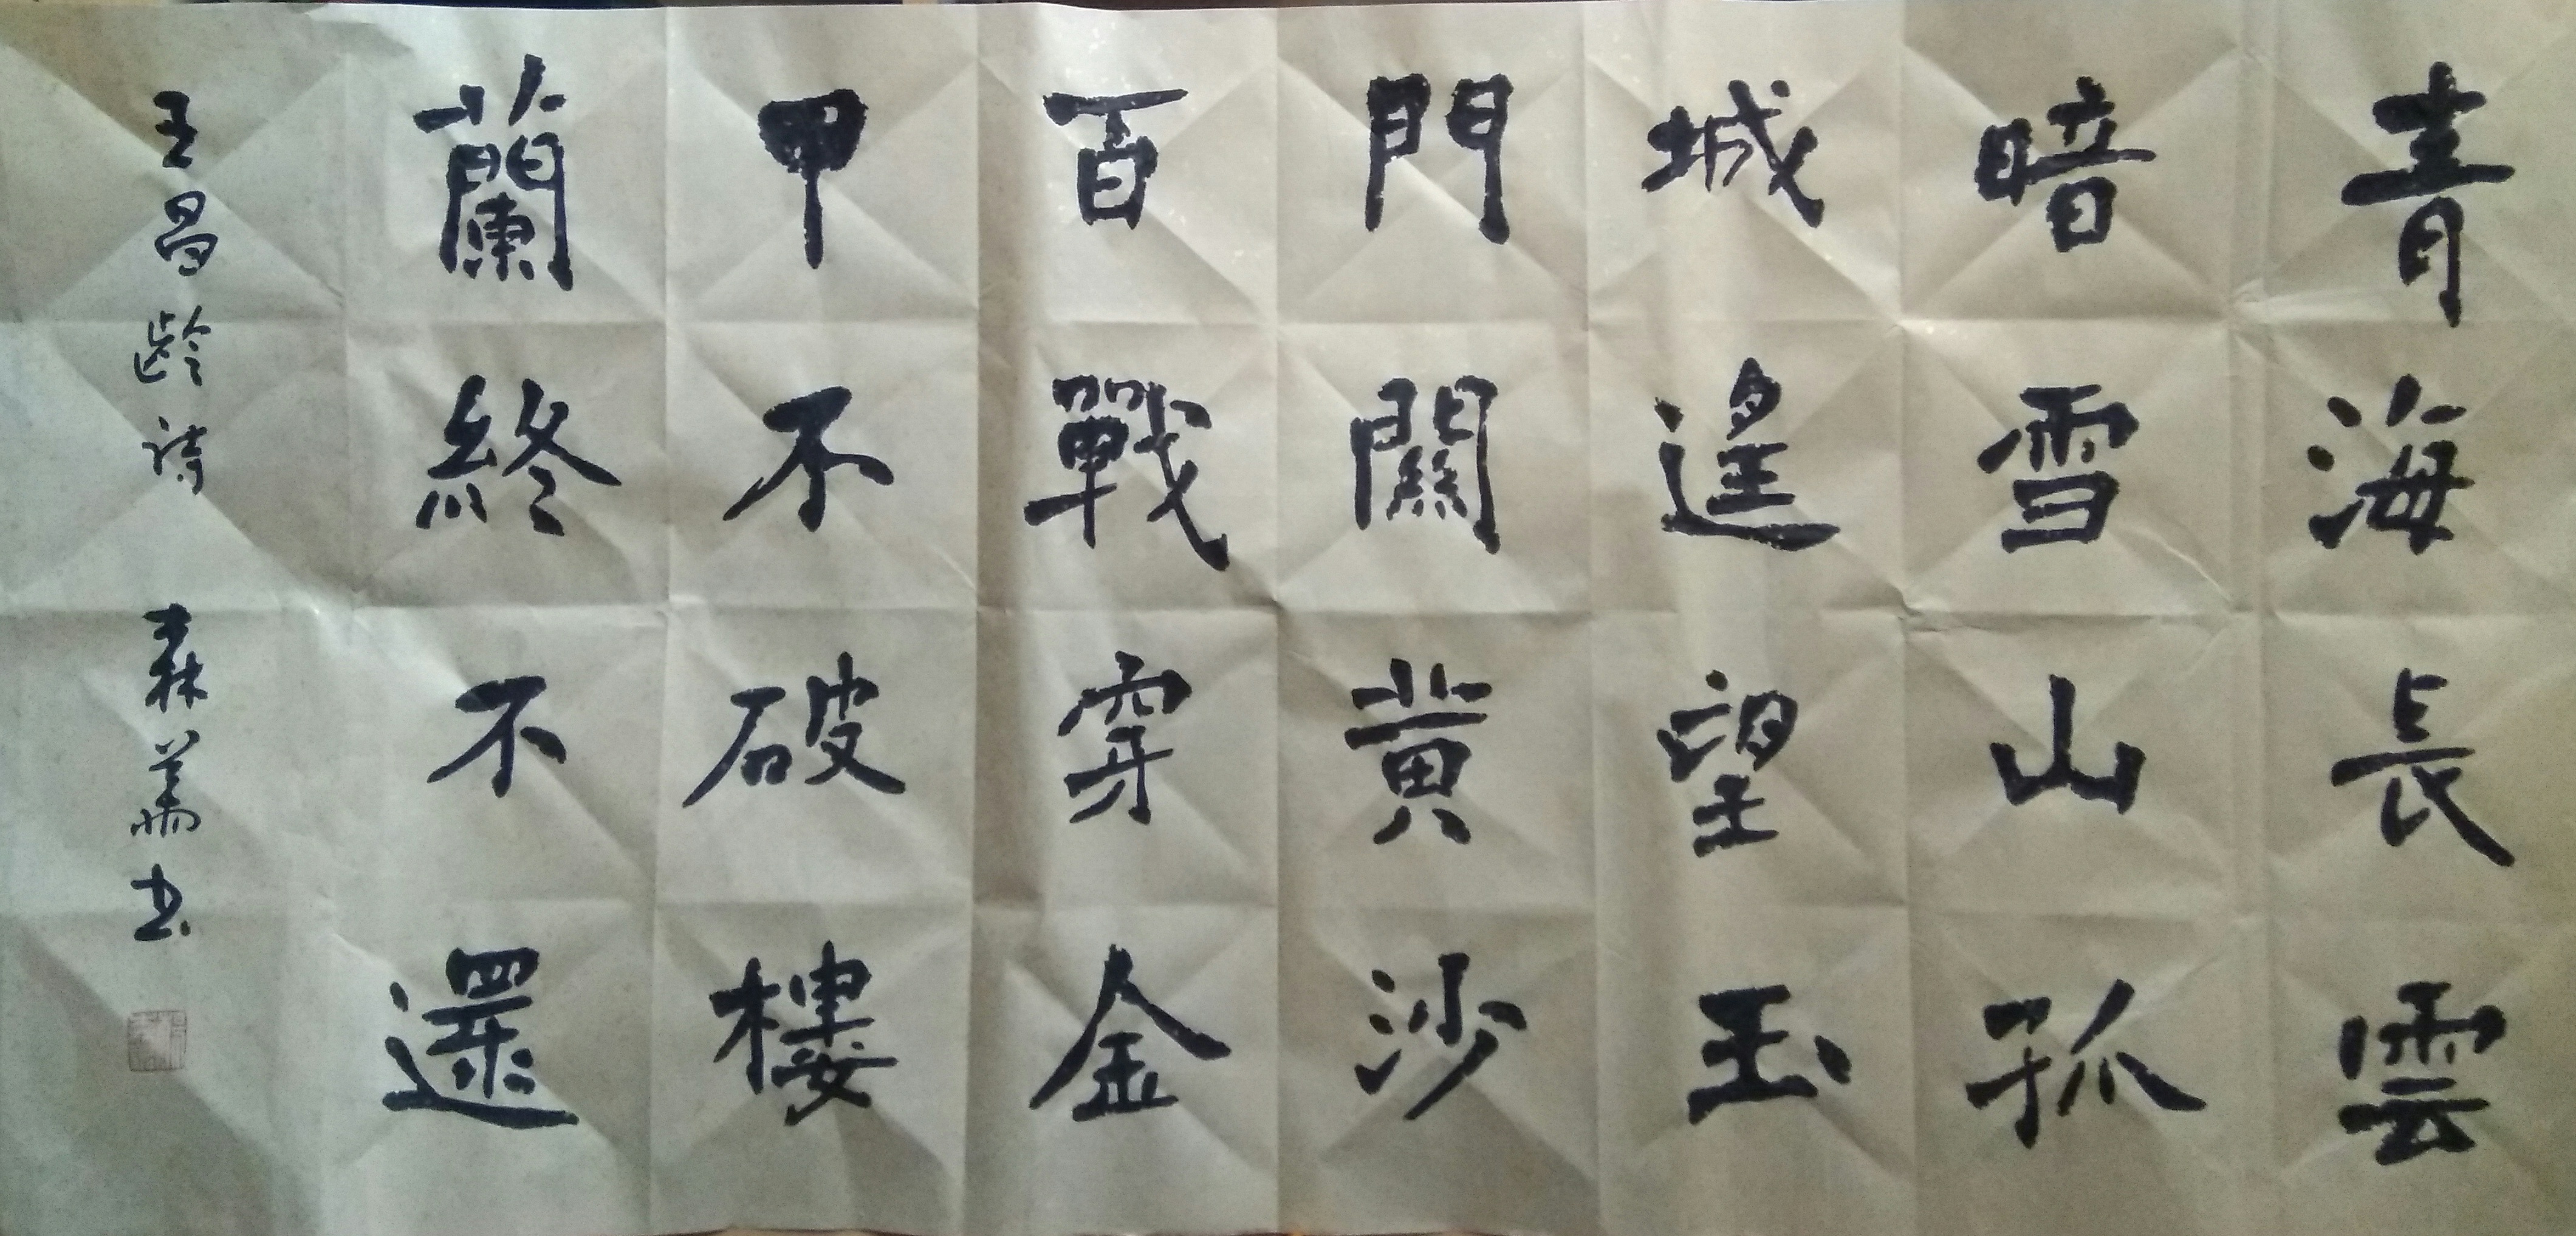 青海長雲
暗雪山孤
城遙望玉
門關黃沙
百戰穿金
甲不破樓
蘭終不還
王昌龄诗 森 书